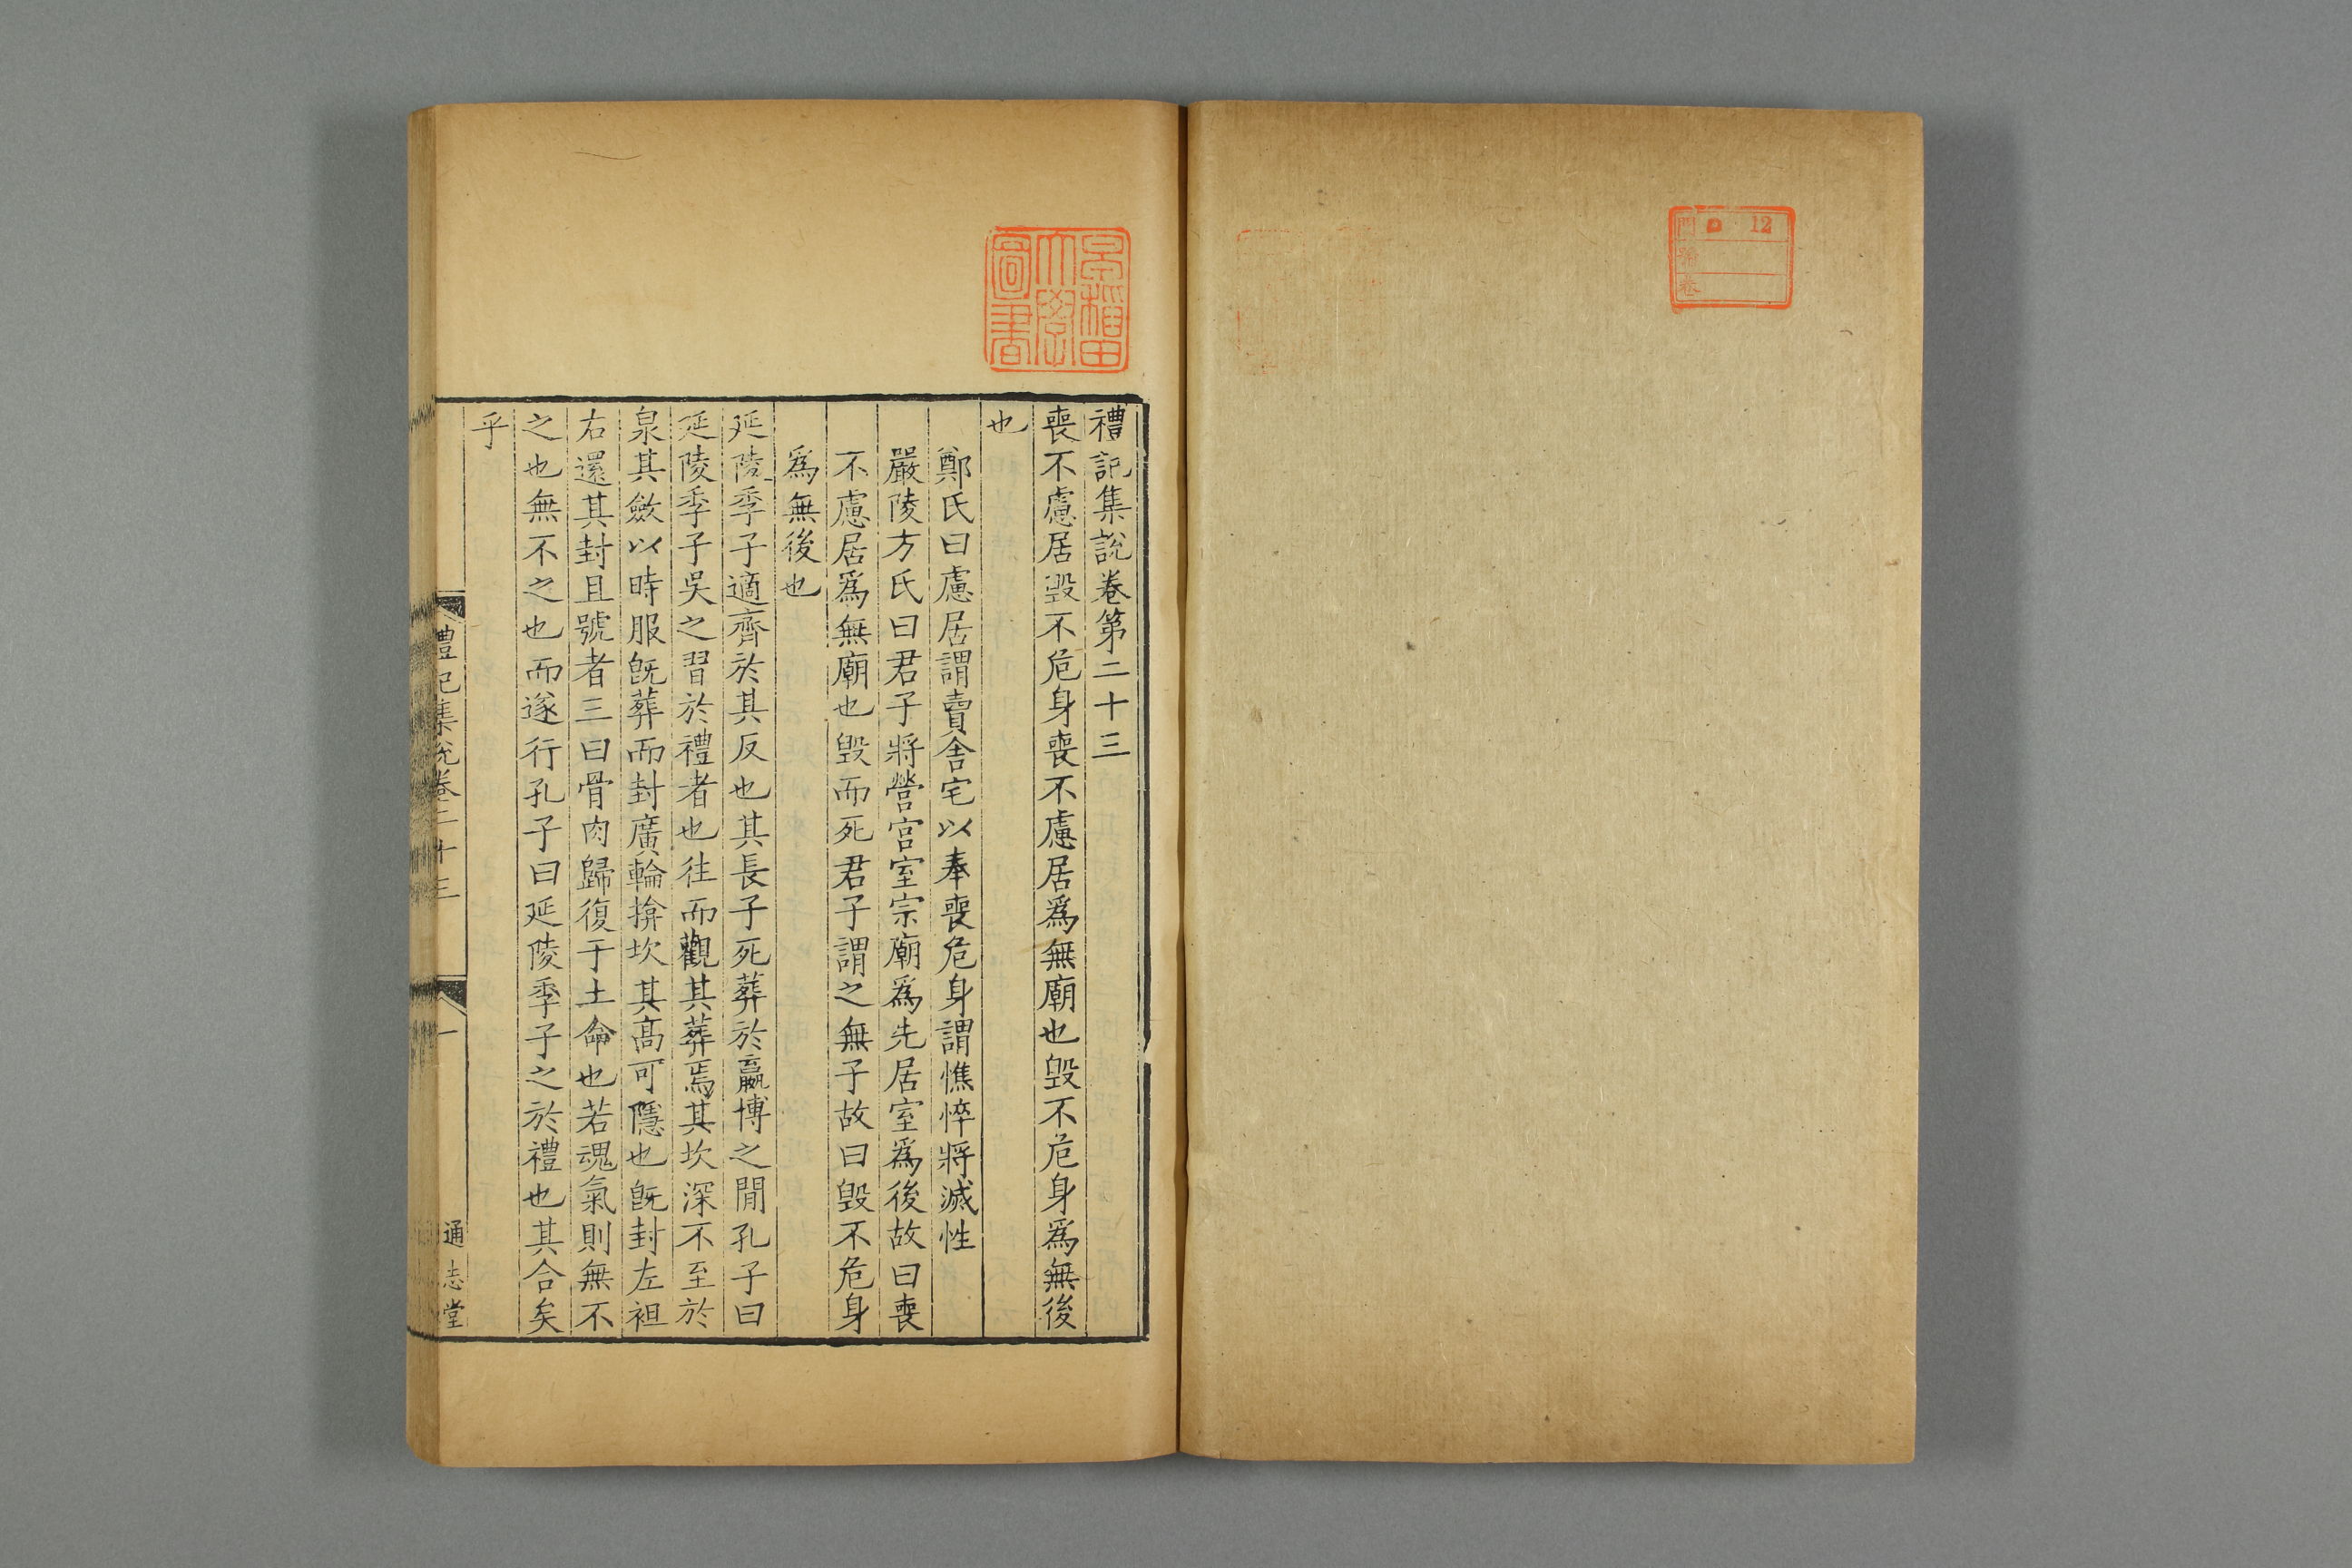 門 ロ 12
號
卷
早稲田
大學
圖書
禮記集説卷第二十三
喪不慮居毀不危身喪不慮居爲無廟也毀不危身爲無後
也
鄭氏曰慮居謂賣舍宅以奉喪危身謂憔悴將滅性
嚴陵方氏曰君子將營宫室宗廟爲先居室爲後故曰喪
不慮居爲無廟也毀而死君子謂之無子故曰毀不危身
爲無後也
延陵季子適齊於其反也其長子死葬於嬴博之閒孔子曰
延陵季子吳之習於禮者也往而觀其葬焉其坎深不至於
泉其斂以時服旣葬而封廣輪揜坎其高可隱也旣封左袒
右還其封且號者三曰骨肉歸復于土命也若魂氣則無不
之也無不之也而遂行孔子曰延陵季子之於禮也其合矣
乎
禮記集說卷二十三
一
通志堂